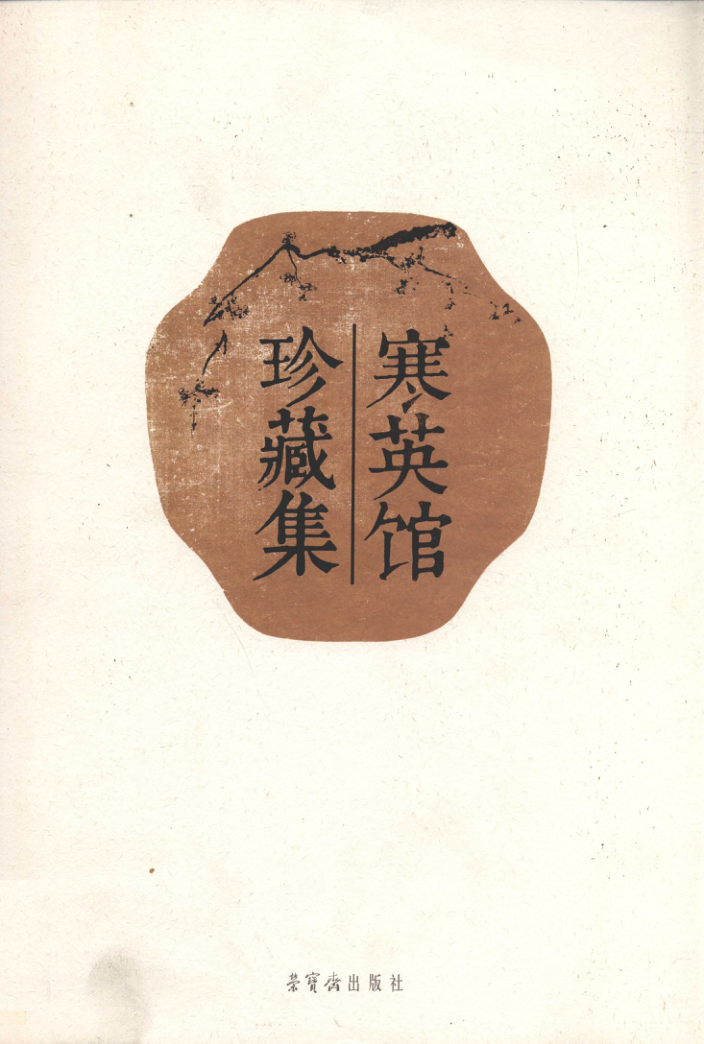 寒英馆
珍藏集
荣寶齋出版社